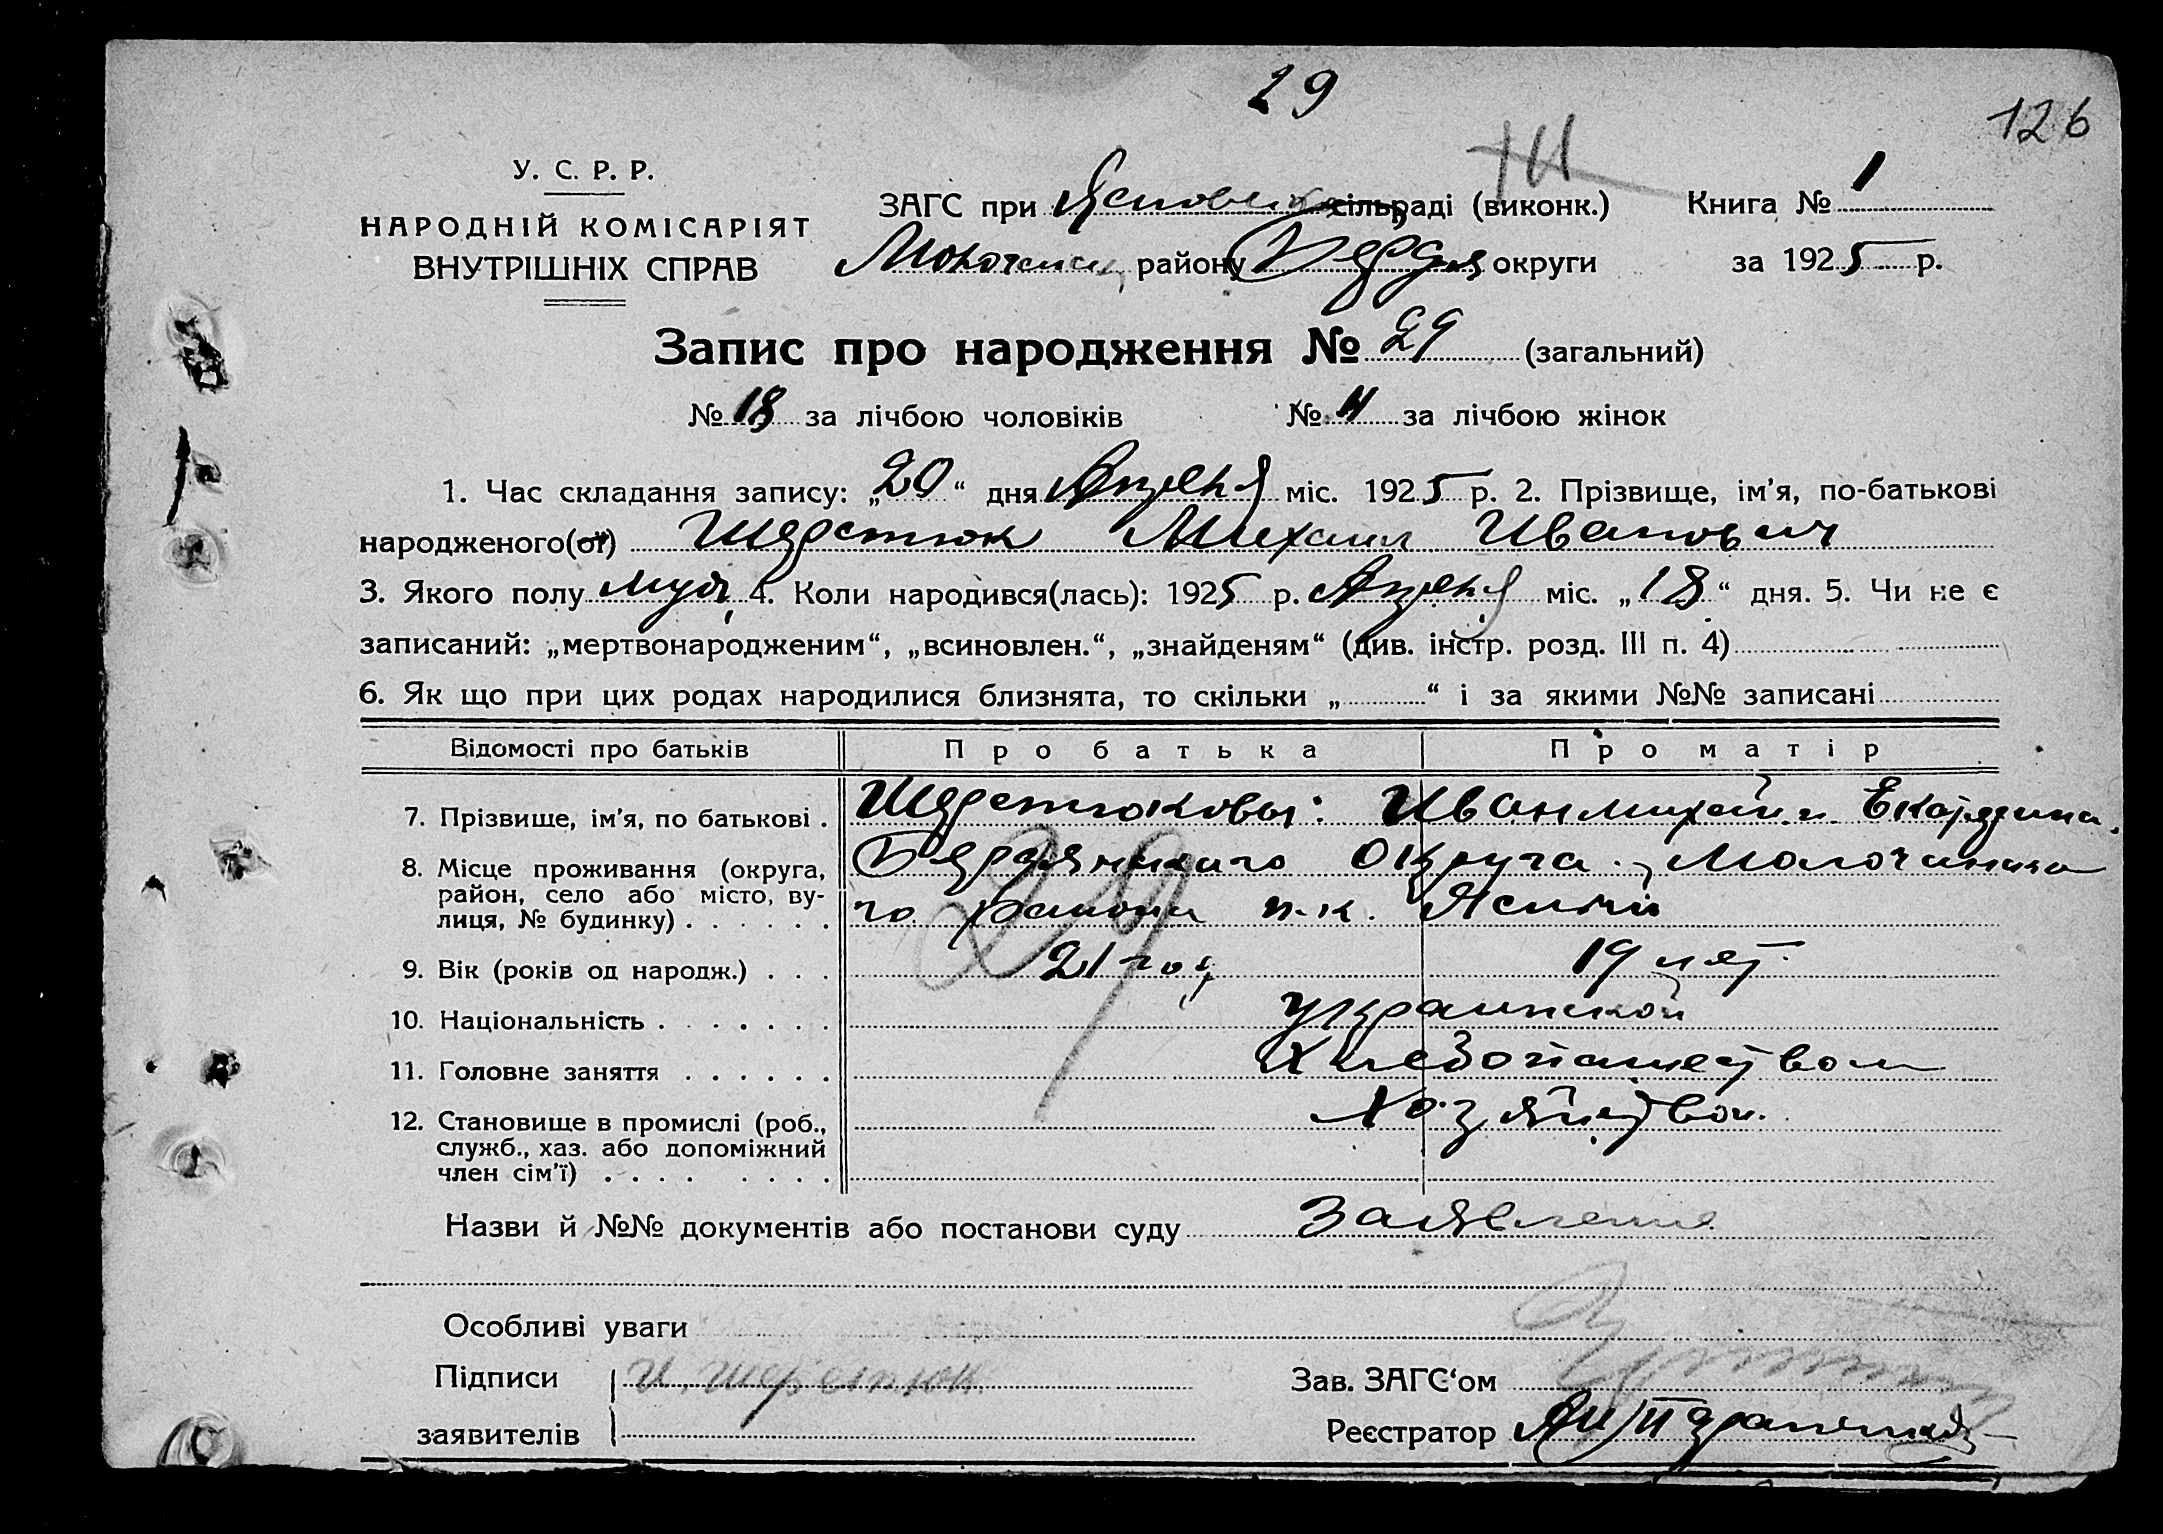 29
126
У. С. Р. Р.
НАРОДНІЙ КОМІСАРІЯТ
ВНУТРІШНІХ СПРАВ
ЗАГС при сільраді (виконк.) Книга № 1
району Бердян округи за 1925 р.
Запис про народження № 29 (загальний)
№ 18 за лічбою чоловіків № 11 за лічбою жінок
1. Час складання запису: „20“ дня Апреля міс. 1925 р. 2. Прізвище, ім’я, по-батькові
народженого(ої) Шерстюк Михаил Иванович
3. Якого полу муж. 4. Коли народився(лась): 1925 р. Апреля міс. „18“ дня. 5. Чи не є
записаний: „мертвонародженим“, „всиновлен.“, „знайденям“ (див. інстр. розд. III п. 4)
6. Як що при цих родах народилися близнята, то скільки „ “ і за якими №№ записані
Відомості про батьків Про батька Про матір
7. Прізвище, ім’я, по батькові . Шерстюковы: Иван Михайл. и Екатерина.
8. Місце проживання (округа, район, село або місто, вулиця, № будинку) . . . . . . Бердянского Округа Молочанско
го района
9. Вік (років од народж.) . . . 21 год 19 лет.
10. Національність . . . . . . . украинской
11. Головне заняття . . . . . . Хлебопашеством
12. Становище в промислі (роб., Хозяйством.
служб., хаз. або допоміжний
член сім’ї) . . . . . . . .
Назви й №№ документів або постанови суду Заявление
Особливі уваги
Підписи И. Шерстюк Зав. ЗАГС‘ом
заявителів Реєстратор
29